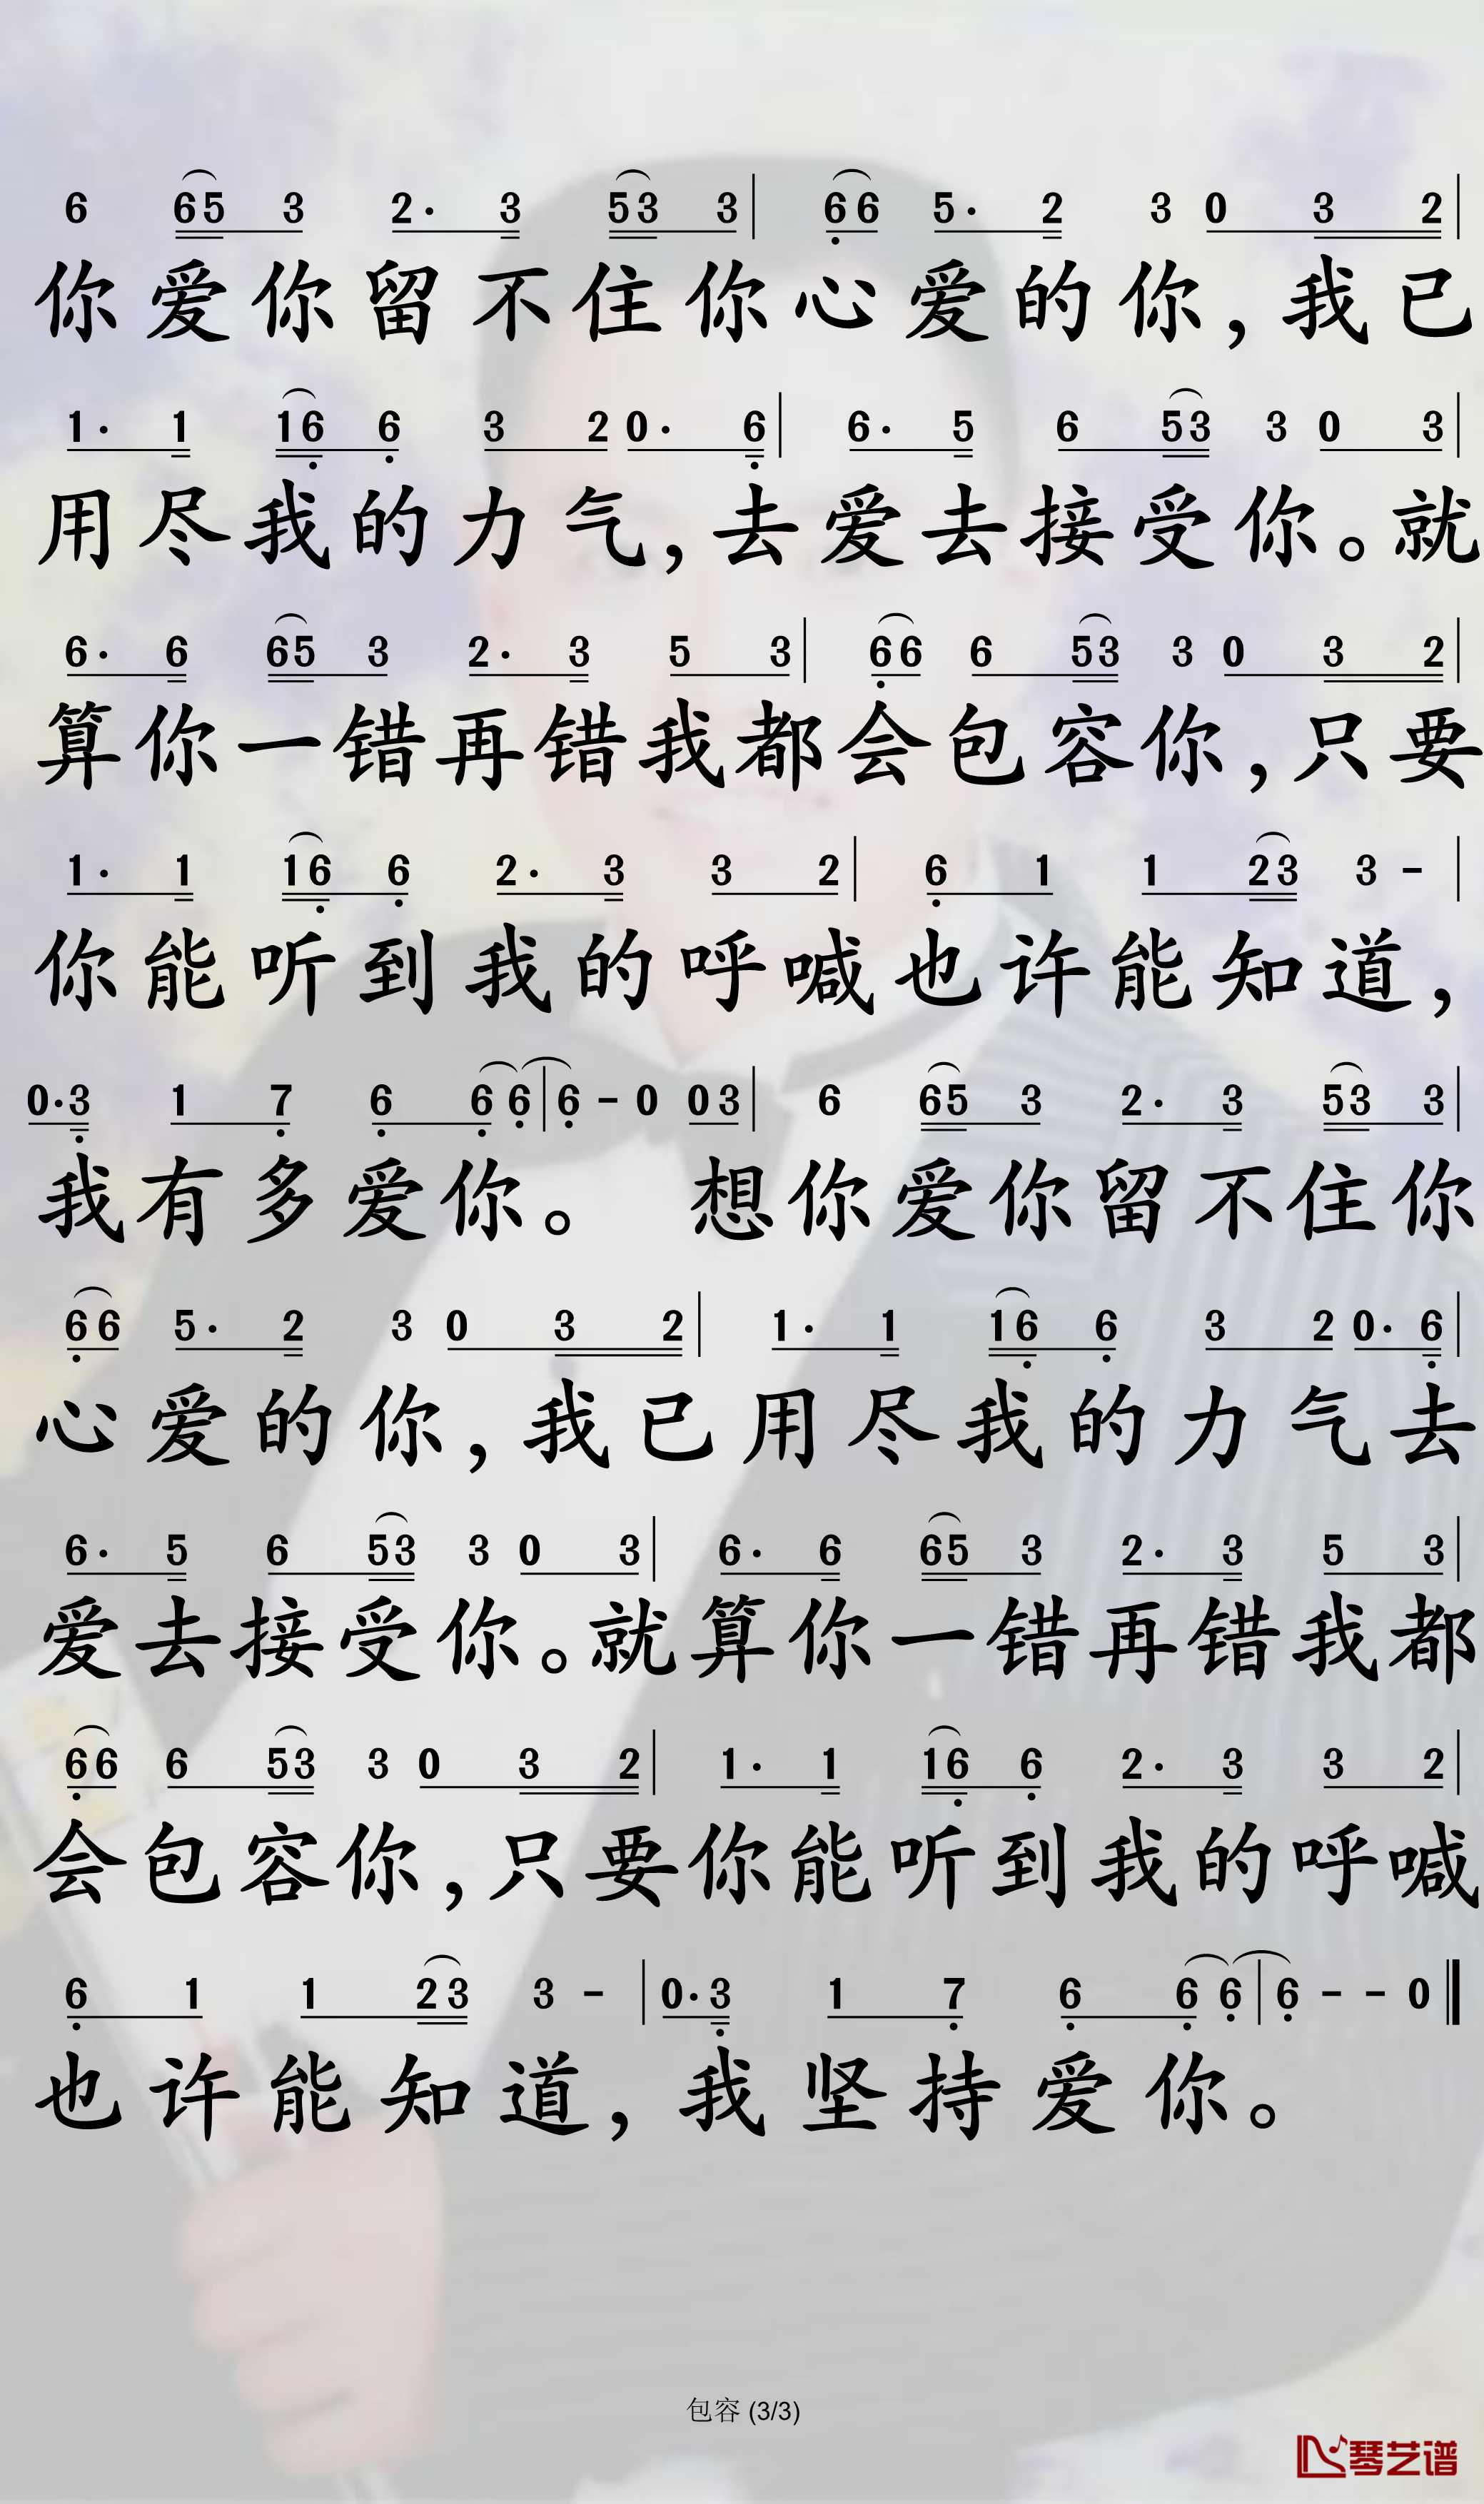 6 65 3 2· 3 53 3 | 66 5· 2 3 0 3 2 |
你爱你留不住你心爱的你，我已
1· 1 16 6 3 2 0· 6 | 6· 5 6 53 3 0 3 |
用尽我的力气，去爱去接受你。就
6· 6 65 3 2· 3 5 3 | 66 6 53 3 0 3 2 |
算你一错再错我都会包容你，只要
1· 1 16 6 2· 3 3 2 | 6 1 1 23 3 - |
你能听到我的呼喊也许能知道，
0·3 1 7 6 6 6 | 6 - 0 03 | 6 65 3 2· 3 53 3 |
我有多爱你。 想你爱你留不住你
66 5· 2 3 0 3 2 | 1· 1 16 6 3 2 0· 6 |
心爱的你，我已用尽我的力气去
6· 5 6 53 3 0 3 | 6· 6 65 3 2· 3 5 3 |
爱去接受你。就算你一错再错我都
66 6 53 3 0 3 2 | 1· 1 16 6 2· 3 3 2 |
会包容你，只要你能听到我的呼喊
6 1 1 23 3 - | 0·3 1 7 6 6 6 | 6 - - 0 ‖
也许能知道，我坚持爱你。
包容 (3/3)
琴艺谱